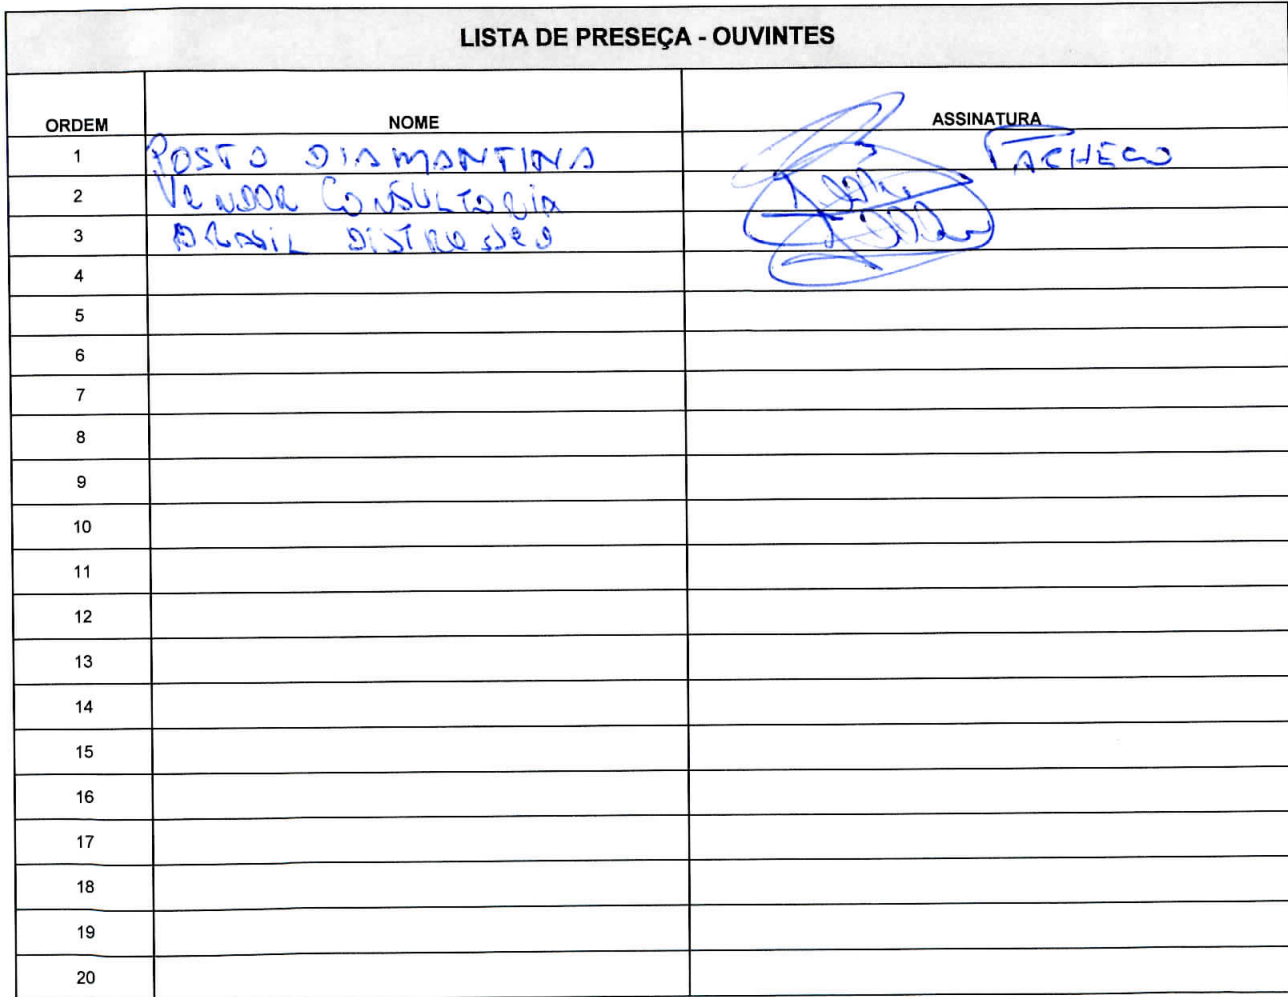 LISTA DE PRESEÇA - OUVINTES
ORDEM NOME ASSINATURA
1 POSTO DIAMANTINA PACHECO
2 CONSULTORIA
3 BRASIL
4
5
6
7
8
9
10
11
12
13
14
15
16
17
18
19
20